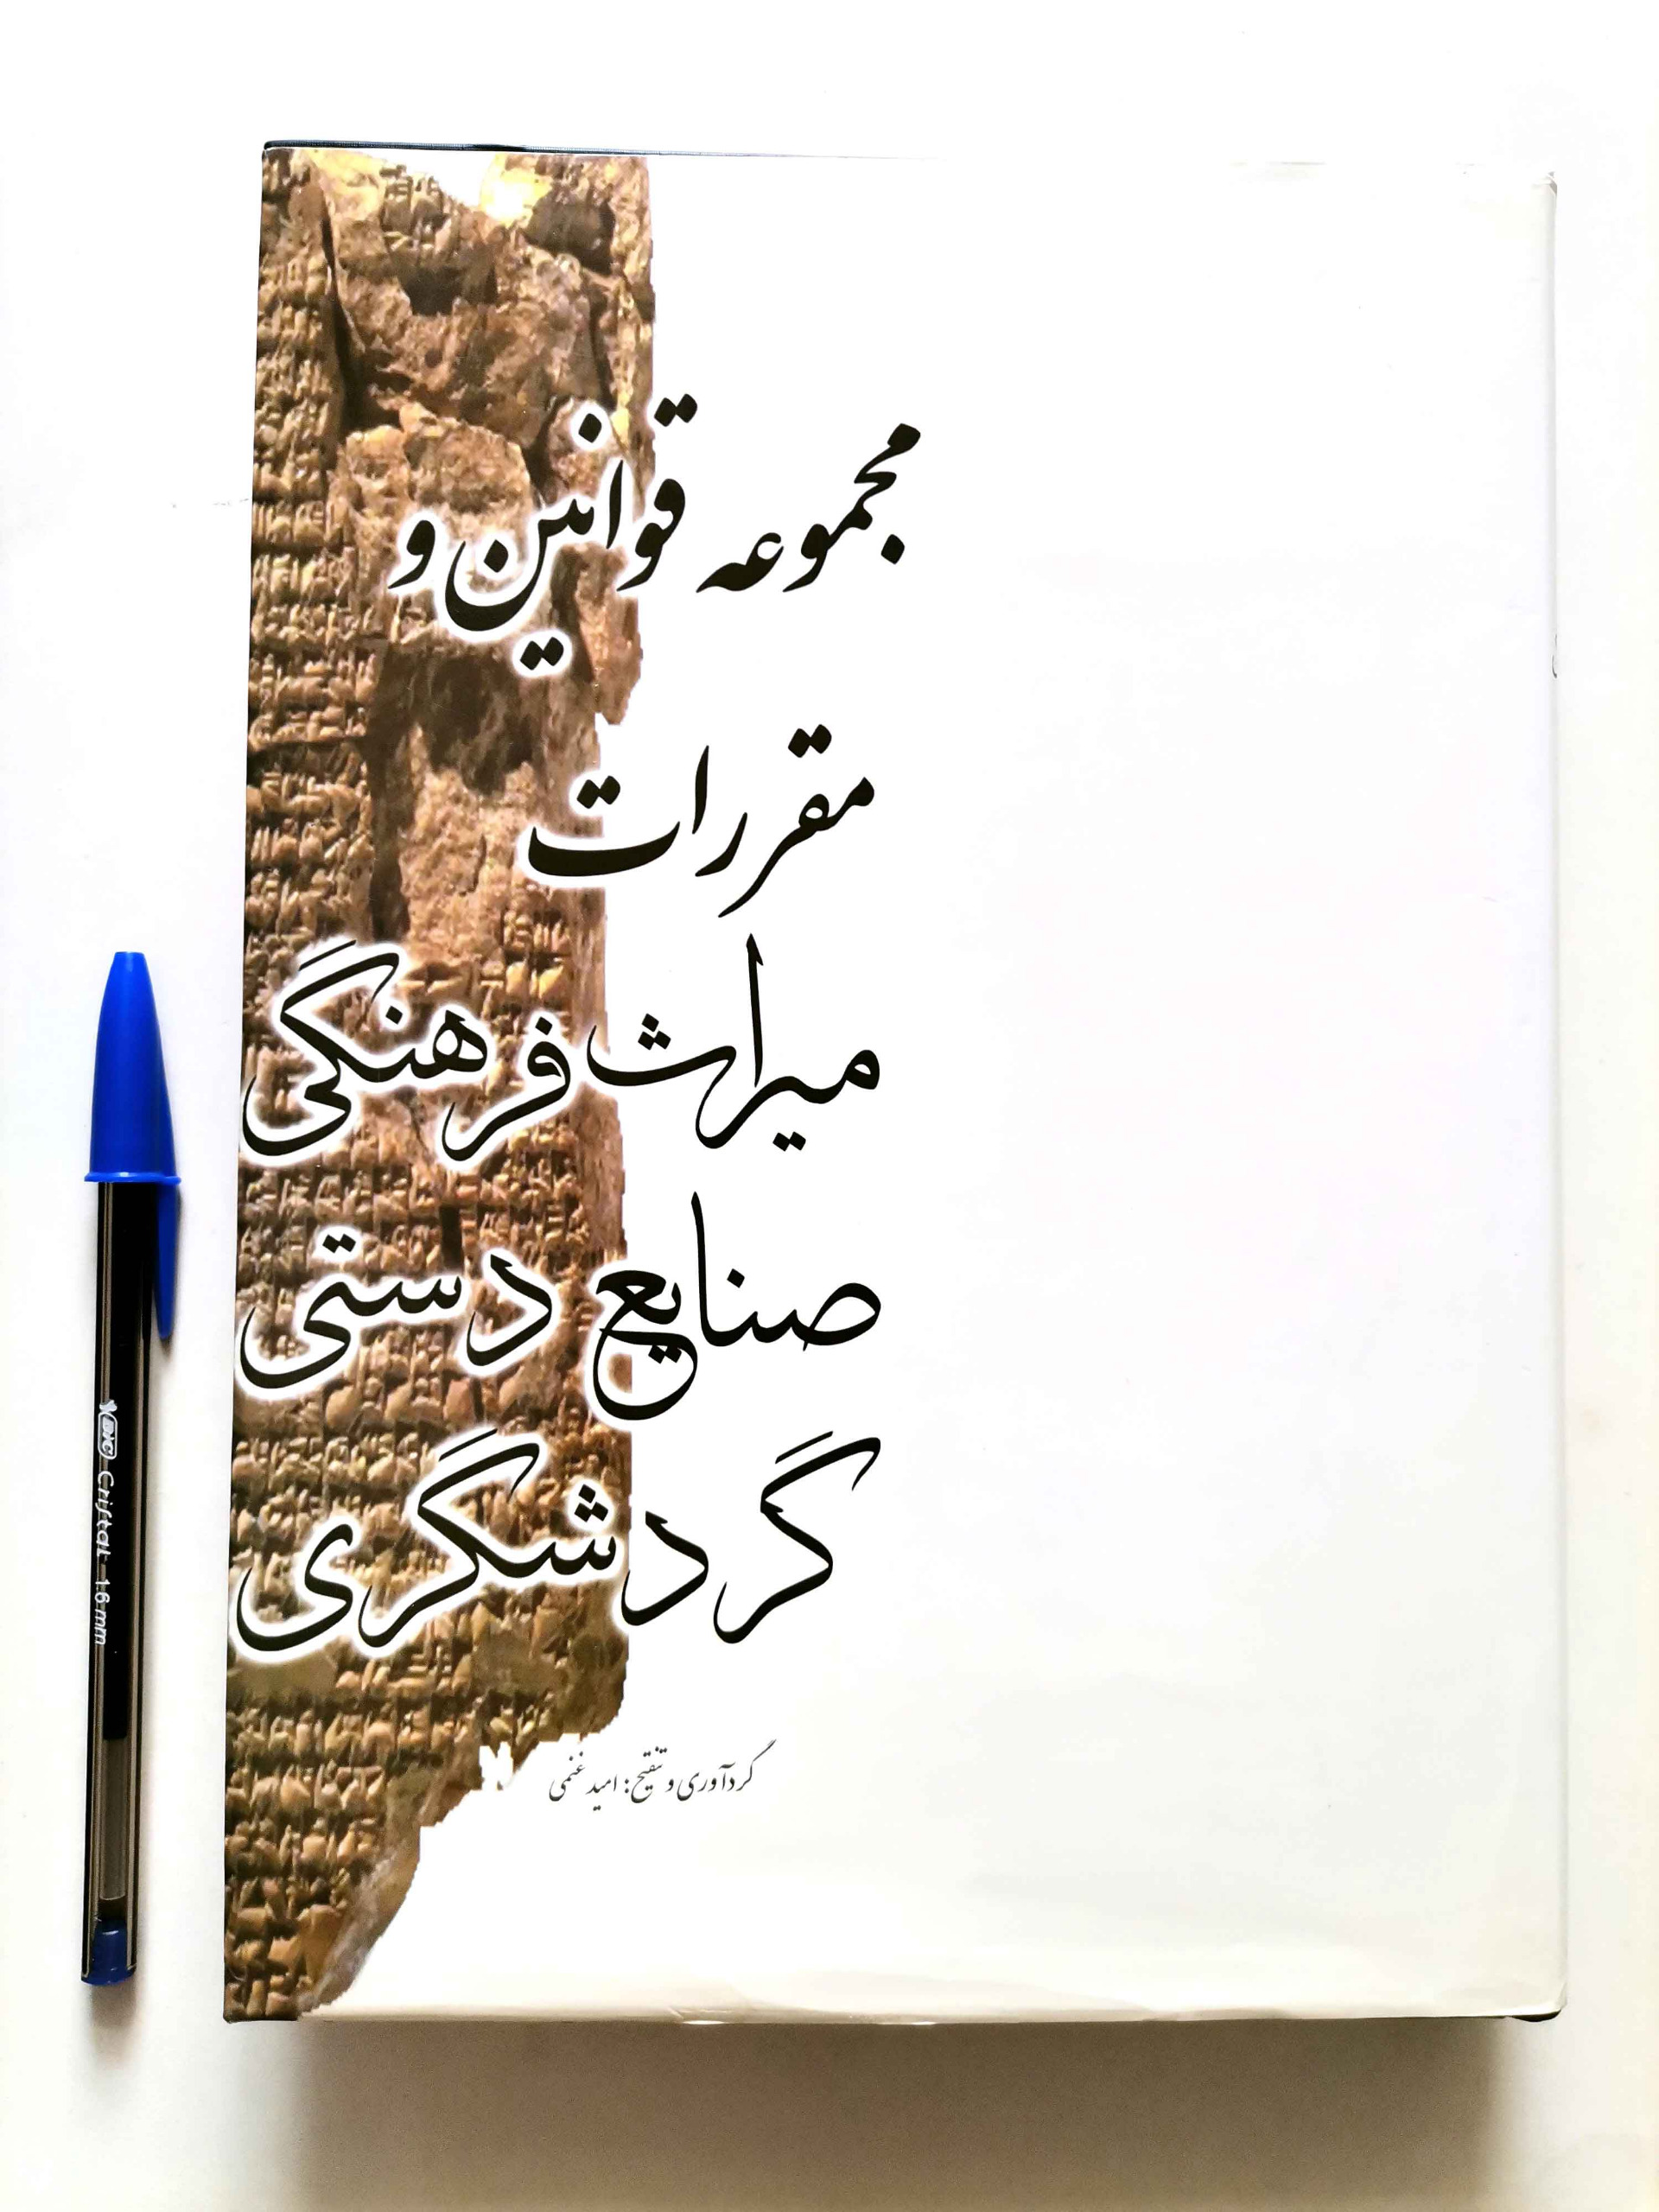 مجموعه قوانین و
مقررات
میراث فرهنگی
صنایع دستی
گردشگری
گردآوری و تنقیح: امید غنمی
BIC Cristal 1.6 mm